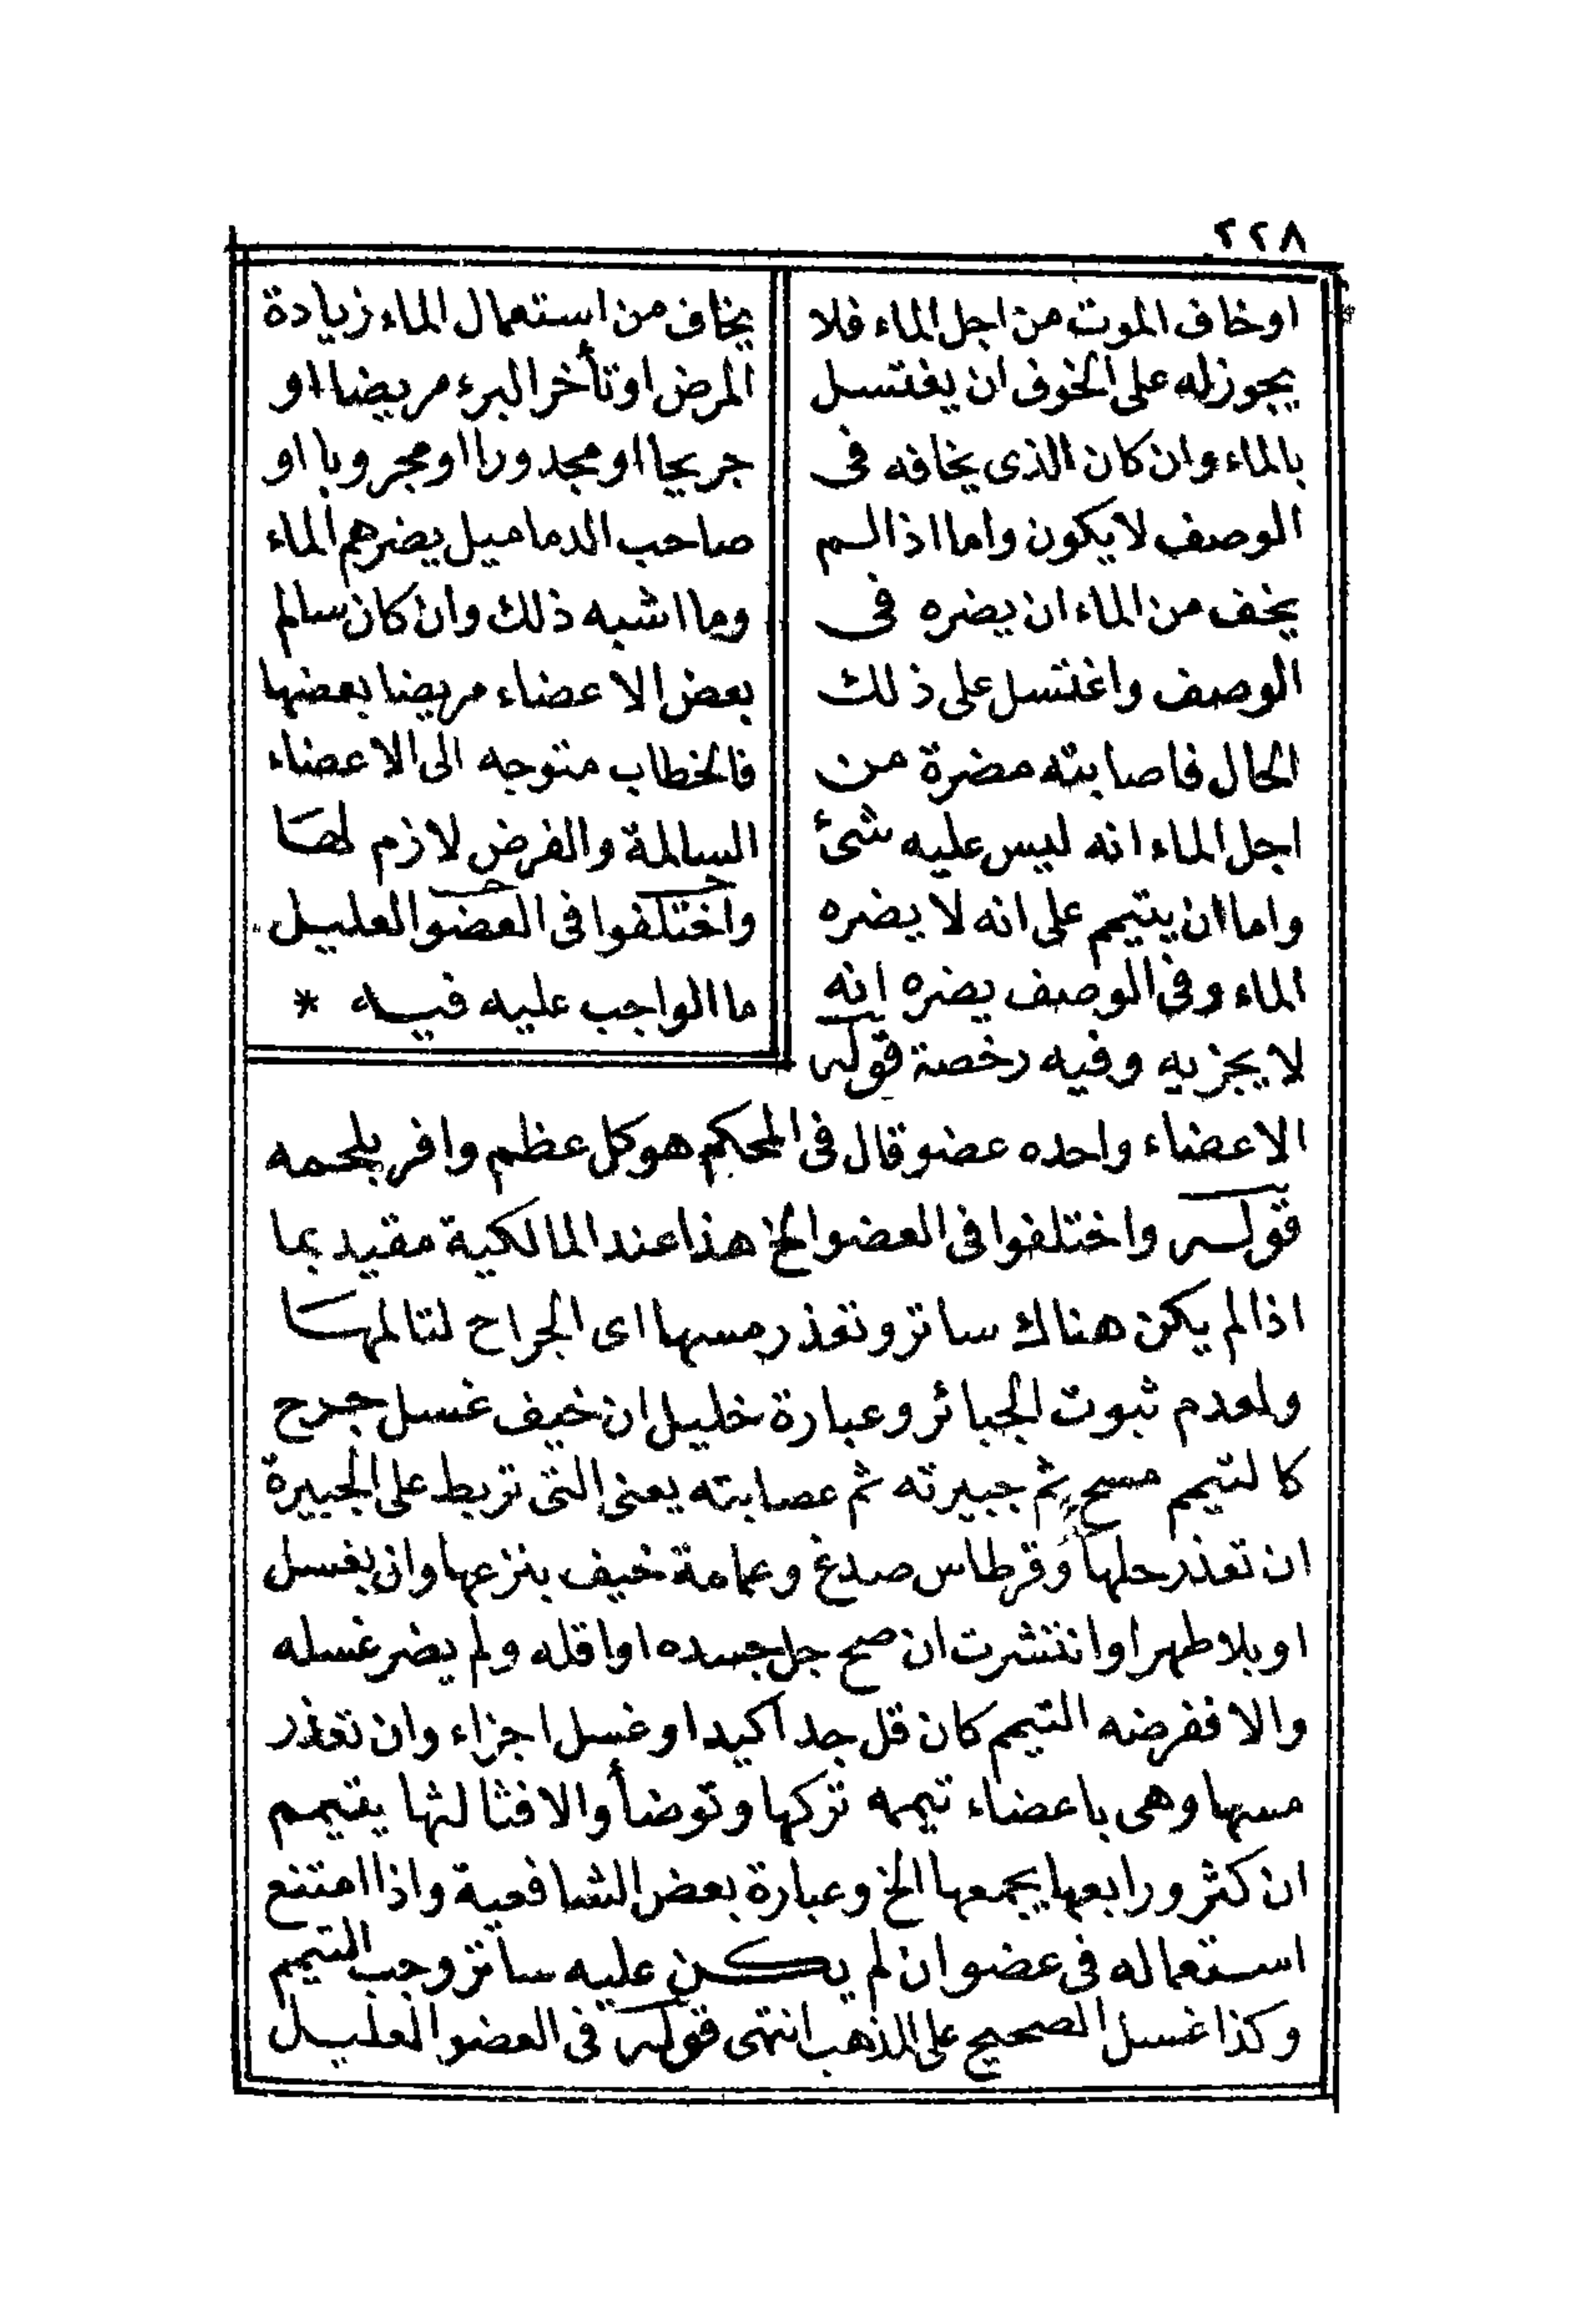 ٢٢٨
اوخاف الموت من اجل الماء فلا
يجوز له على الخوف ان يغتسل
بالماء وان كان الذى يخافه فى
الوصف لا يكون واما اذا لم
يخف من الماء ان يضره فى
الوصف واغتسل على ذلك
الحال فاصابته مضرة من
اجل الماء انه ليس عليه شئ
واما ان يتيمم على انه لا يضره
الماء وفى الوصف يضره انه
لا يجزيه وفيه رخصة قوله
يخاف من استعمال الماء زيادة
المرض او تأخر البرء مريضا او
جريحا او مجدورا او مجروبا او
صاحب الدماميل يضرهم الماء
وما اشبه ذلك وان كان سالم
بعض الاعضاء مريضا بعضها
فالخطاب متوجه الى الاعضاء
السالمة والفرض لازم لها
واختلفوا فى العضو العليل
ما الواجب عليه فيه *
الاعضاء واحده عضو قال فى المحكم هو كل عظم وافر بلحمه
قوله واختلفوا فى العضو الخ هذا عند المالكية مقيد بما
اذا لم يكن هناك ساتر وتعذر مسها اى الجراح لتالمها
ولعدم ثبوت الجبائر وعبارة خليل ان خيف غسل جرح
كالتيمم مسح ثم جبيرته ثم عصابته يعنى التى تربط على الجبيرة
ان تعذر حلها وقرطاس صدغ وعمامة خيف بنزعها وان بغسل
او بلا طهر او انتشرت ان صح جل جسده او اقله ولم يضر غسله
والا ففرضه التيمم كان قل جدا كيد او غسل اجزاء وان تعذر
مسها وهى باعضاء تيممه تركها وتوضأ والا فثالثها يتيمم
ان كثر ورابعها يجمعها الخ وعبارة بعض الشافعية واذا امتنع
استعماله فى عضو ان لم يكن عليه ساتر وجب التيمم
وكذا غسل الصحيح على المذهب انتهى قوله فى العضو العليل